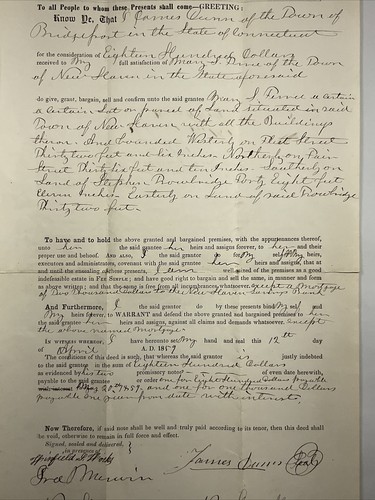 To all People to whom these Presents shall come—GREETING:
Know Ye, That I James Quinn of the Town of
Bridgeport in the State of Connecticut
for the consideration of Eighteen Hundred Dollars
received to my full satisfaction of Mary I. of the Town
of New Haven in the State aforesaid
do give, grant, bargain, sell and confirm unto the said grantee Mary I. a certain
a certain Lot or parcel of Land situated in said
Town of New Haven with all the Buildings
thereon. And bounded Westerly on Street
Thirty two feet and six Inches Northerly on Fair
Street Thirty six feet and ten Inches. Southerly on
Land of Stephen Trowbridge Forty Eight feet
Eleven Inches. Easterly on Land of said Trowbridge
Thirty two feet
To have and to hold the above granted and bargained premises, with the appurtenances thereof,
unto her the said grantee her heirs and assigns forever, to her and their
proper use and behoof. And also, I the said grantor do for my self & my heirs,
executors and administrators, covenant with the said grantee her heirs and assigns, that at
and until the ensealing of these presents, I am well seized of the premises as a good
indefeasible estate in FEE SIMPLE; and have good right to bargain and sell the same, in manner and form
as above written; and that the same is free from all incumbrances whatsoever, except a Mortgage
of Two Thousand Dollars to the New Haven Savings Bank
And Furthermore, I the said grantor do by these presents bind my self and
my heirs forever, to WARRANT and defend the above granted and bargained premises to her
the said grantee her heirs and assigns, against all claims and demands whatsoever, except
the above named mortgage.
IN WITNESS WHEREOF, I have hereunto set my hand and seal this 12th day
of April A. D. 1859
The condition of this deed is such, that whereas the said grantor is justly indebted
to the said grantee in the sum of Eighteen Hundred Dollars
as evidenced by his two promissory notes of even date herewith,
payable to the said grantee or order one for Eight Hundred Dollars payable
1859, and one for one thousand Dollars
payable one year from date with interest.
Now Therefore, if said note shall be well and truly paid according to its tenor, then this deed shall
be void, otherwise to remain in full force and effect.
Signed, sealed and delivered,
in presence of
James Quinn Seal
Merwin